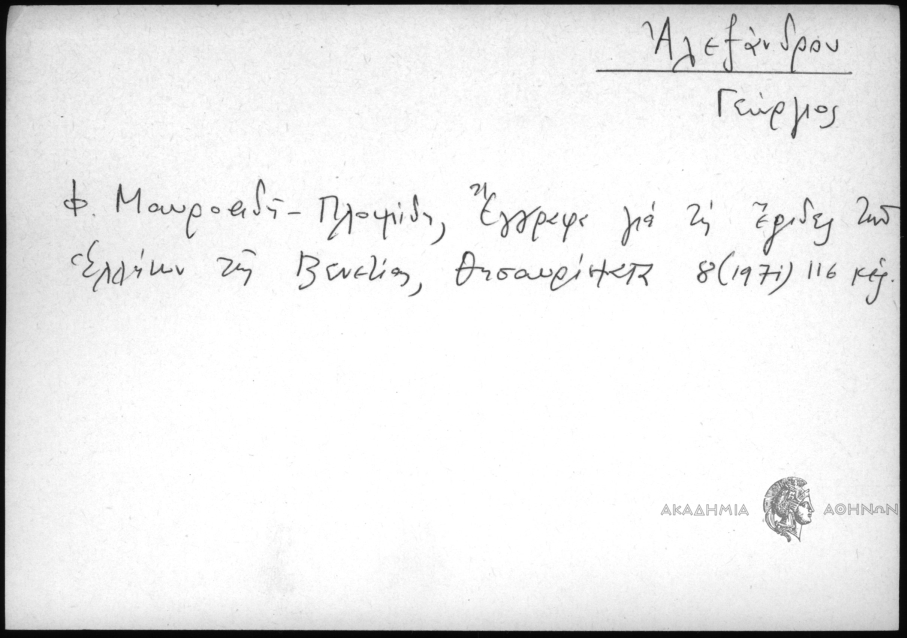 Ἀλεξάνδρου
Γεώργιος
Φ. Μαυροειδῆ - Πλουμίδη, Ἔγγραφα γιά τίς ἔριδες τῶν
Ἑλλήνων τῆς Βενετίας, Θησαυρίσματα 8 (1971) 116 κἑξ.
ΑΚΑΔΗΜΙΑ ΑΘΗΝΩΝ